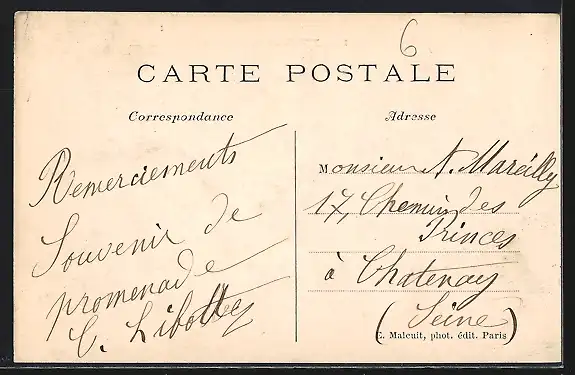 6
CARTE POSTALE
Correspondance
Adresse
Remerciements
Souvenir de
promenade
Monsieur A. Mareilly
17, Chemin des
Princes
à Chatenay
(Seine)
E. Malcuit, phot. édit. Paris